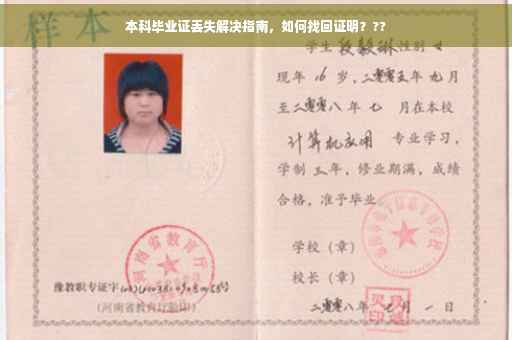 本科毕业证丢失解决指南，如何找回证明？??
样本
学生 段毅琳 性别 女
现年 16 岁，二零零五年 九 月
至二零零八年 七 月在本校
计算机应用 专业学习，
学制 三 年，修业期满，成绩
合格，准予毕业
学校（章）
校长（章）
二零零八年 七 月 一 日
河南省教育厅
豫教职专证字
（河南省教育厅验印）